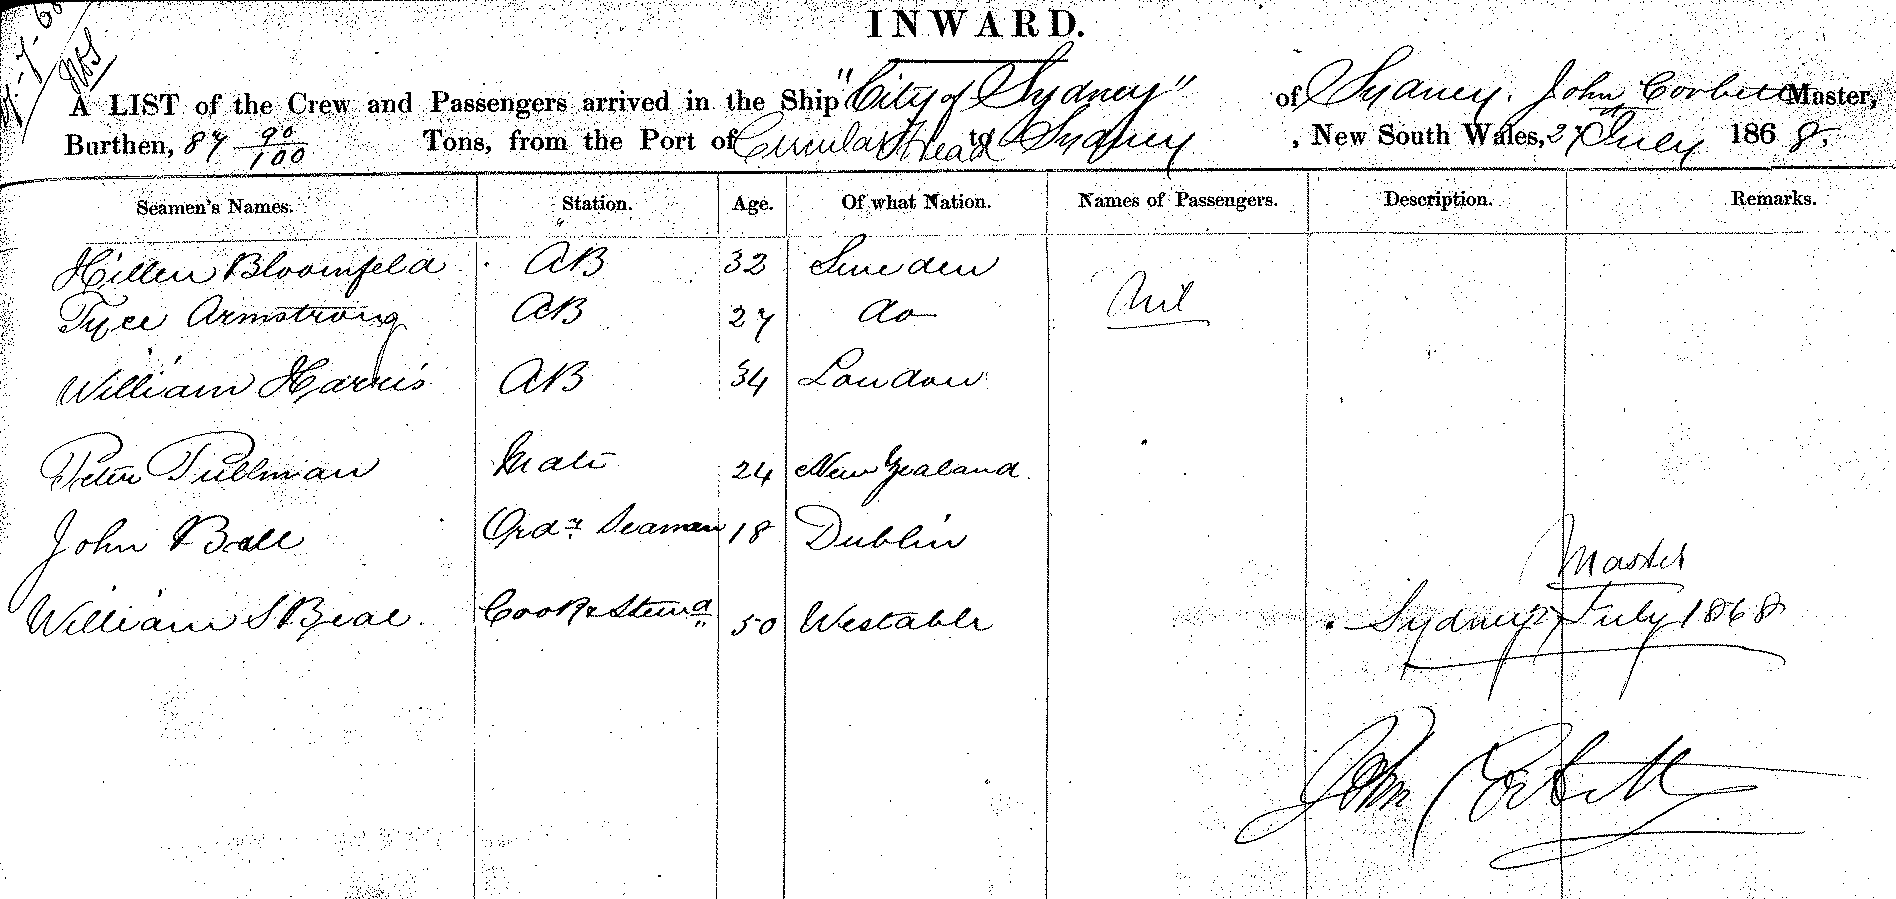 INWARD.
A LIST of the Crew and Passengers arrived in the Ship "City of Sydney" of Sydney. John Corbett Master,
Burthen, 87 90/100 Tons, from the Port of Circular Head to Sydney, New South Wales, 27 July 1868.
Seamen's Names. Station. Age. Of what Nation. Names of Passengers. Description. Remarks.
Hillen Bloomfeld AB 32 Sweden
Nil
Tyce Armstrong AB 27 do
William Harris AB 34 London
Peter Pullman Mate 24 New Zealand
John Ball Ordy Seaman 18 Dublin
Master
William S Beal Cook & Stewd 50
Sydney 27 July 1868
John Corbett